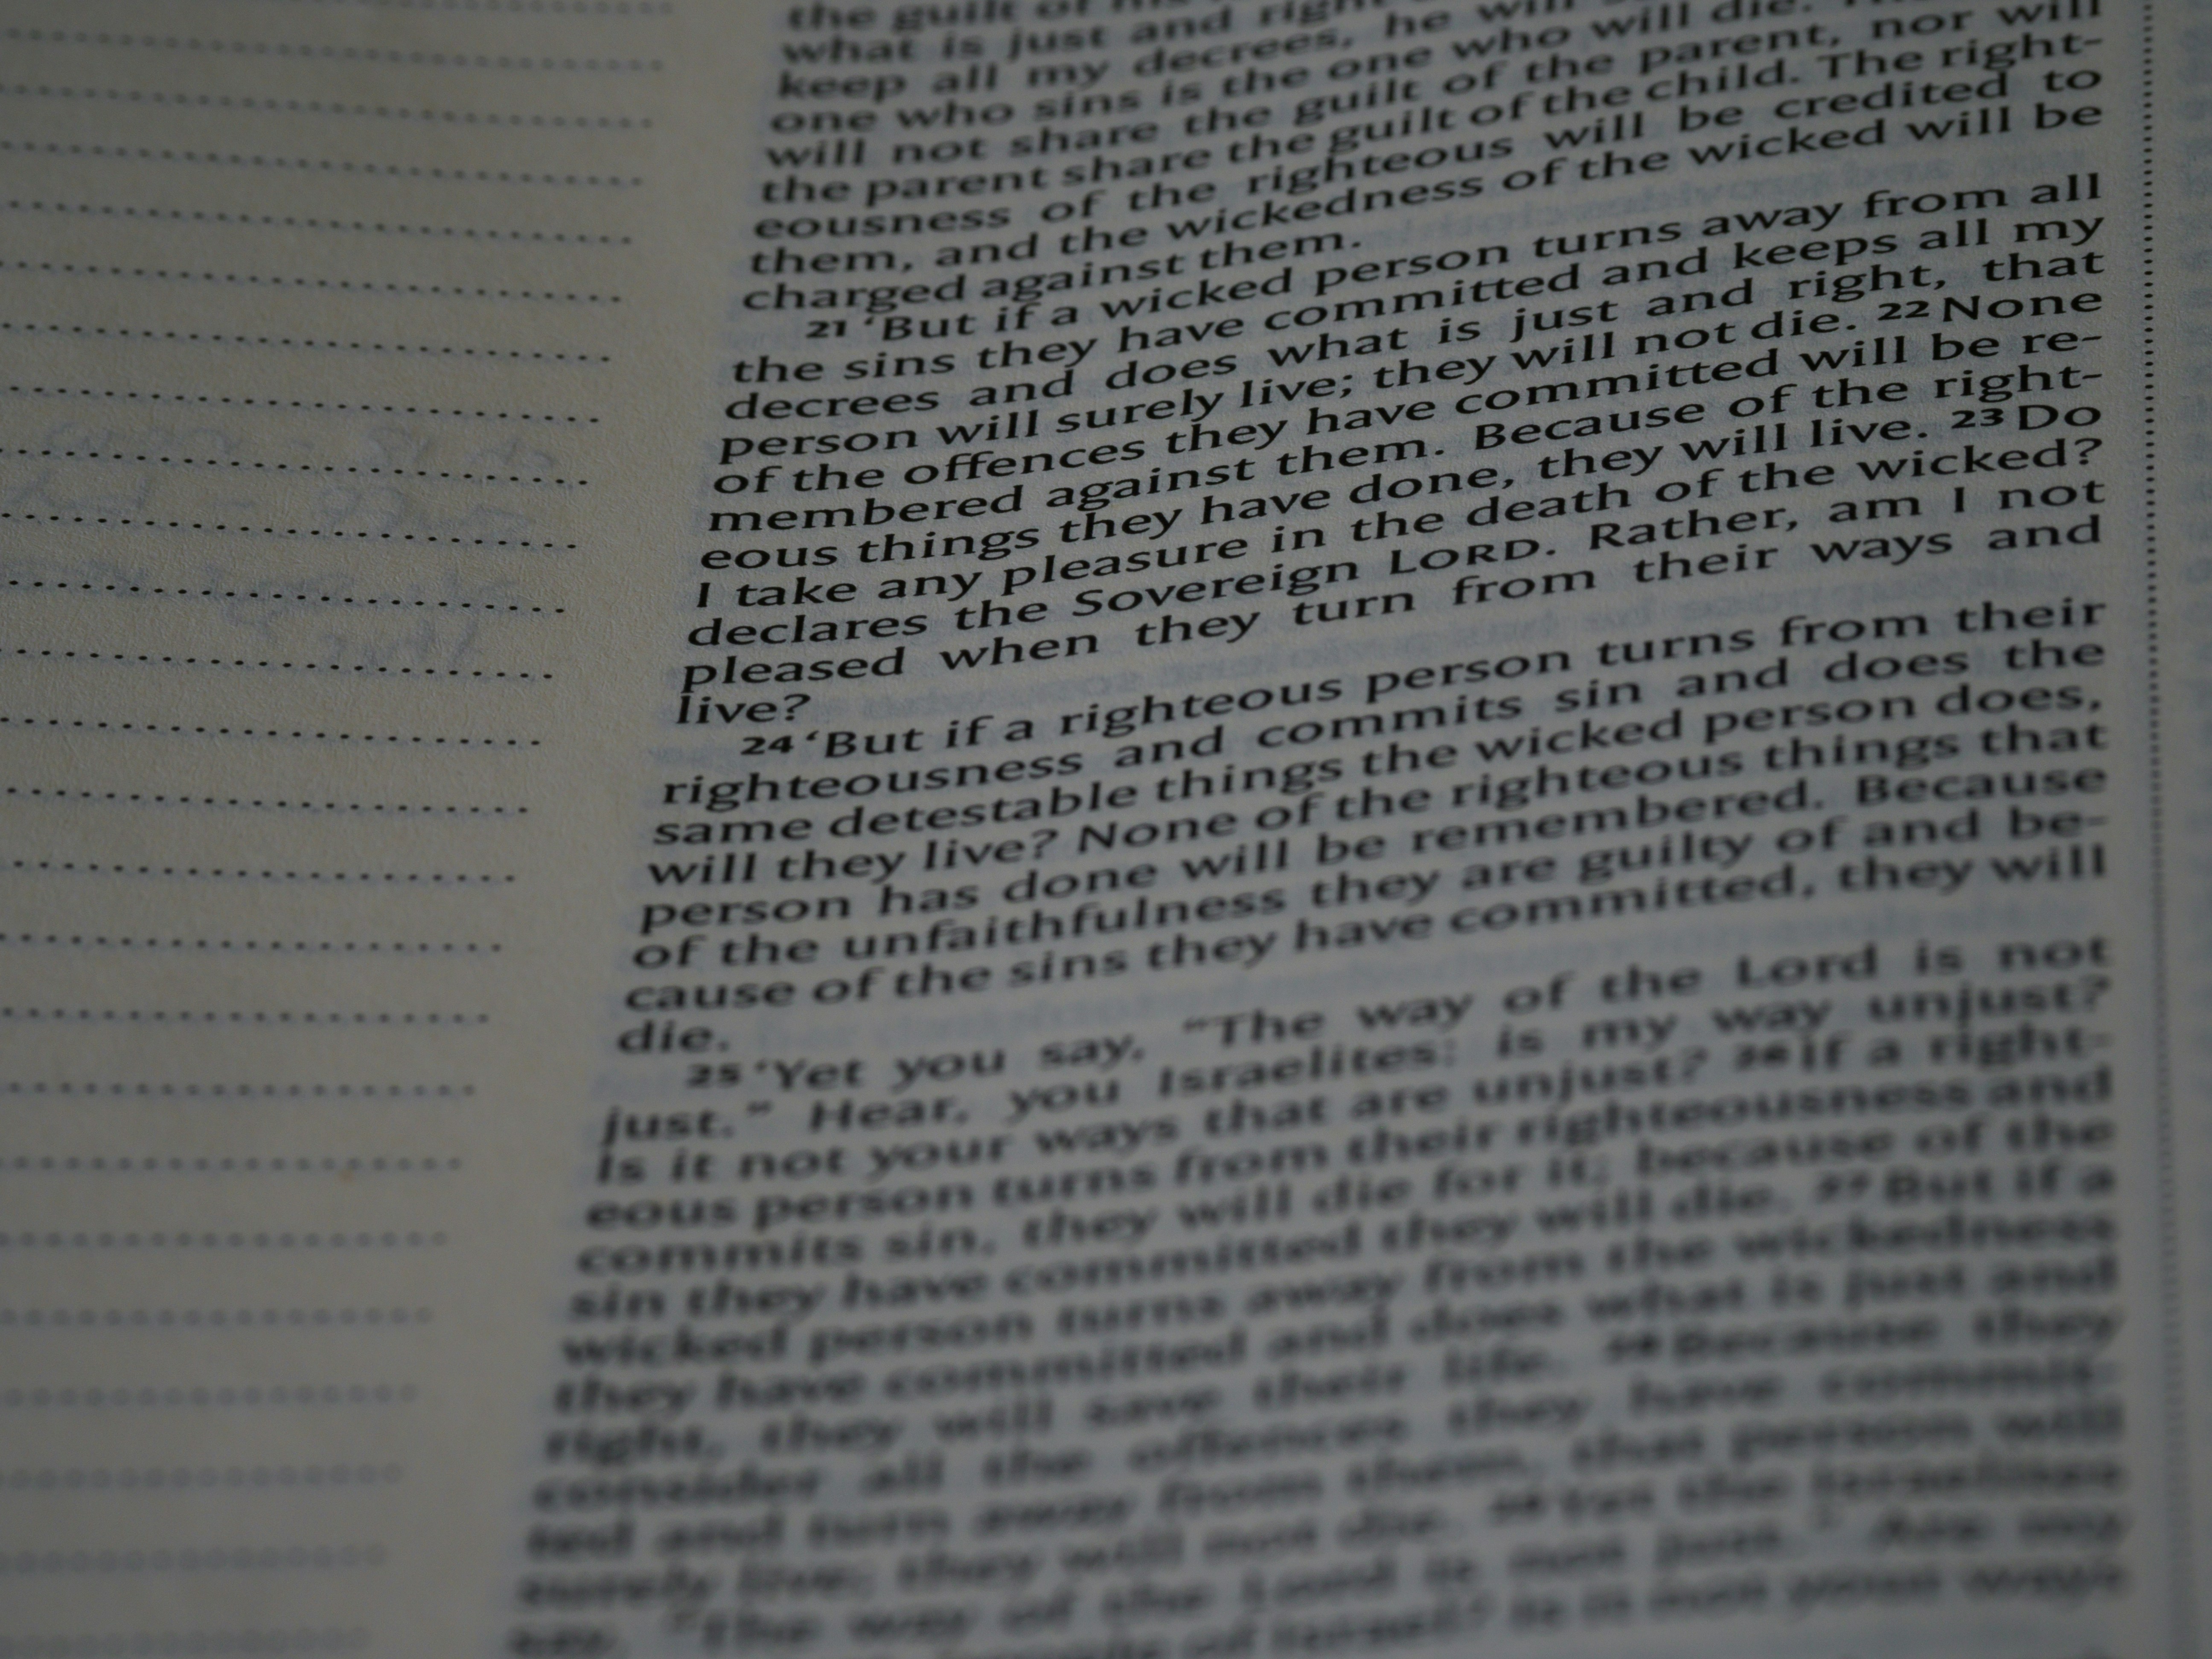 the guilt of
what is just and right
keep all my decrees, he will
one who sins is the one who will die.
will not share the guilt of the parent, nor will
the parent share the guilt of the child. The right-
eousness of the righteous will be credited to
them, and the wickedness of the wicked will be
charged against them.
21 ‘But if a wicked person turns away from all
the sins they have committed and keeps all my
decrees and does what is just and right, that
person will surely live; they will not die. 22 None
of the offences they have committed will be re-
membered against them. Because of the right-
eous things they have done, they will live. 23 Do
I take any pleasure in the death of the wicked?
declares the Sovereign LORD. Rather, am I not
pleased when they turn from their ways and
live?
24 ‘But if a righteous person turns from their
righteousness and commits sin and does the
same detestable things the wicked person does,
will they live? None of the righteous things that
person has done will be remembered. Because
of the unfaithfulness they are guilty of and be-
cause of the sins they have committed, they will
die.
25 ‘Yet you say, “The way of the Lord is not
just.” Hear, you Israelites: is my way unjust?
Is it not your ways that are unjust? 26 If a right-
eous person turns from their righteousness and
commits sin, they will die for it; because of the
sin they have committed they will die. 27 But if a
wicked person turns away from the wickedness
they have committed and does what is just and
right, they will save their life. 28 Because they
consider all the offences they have commit-
ted and turn away from them, that person will
surely live; they will not die. 29 Yet the Israelites
say, “The way of the Lord is not just.” Are my
of Israel? Is it not your ways